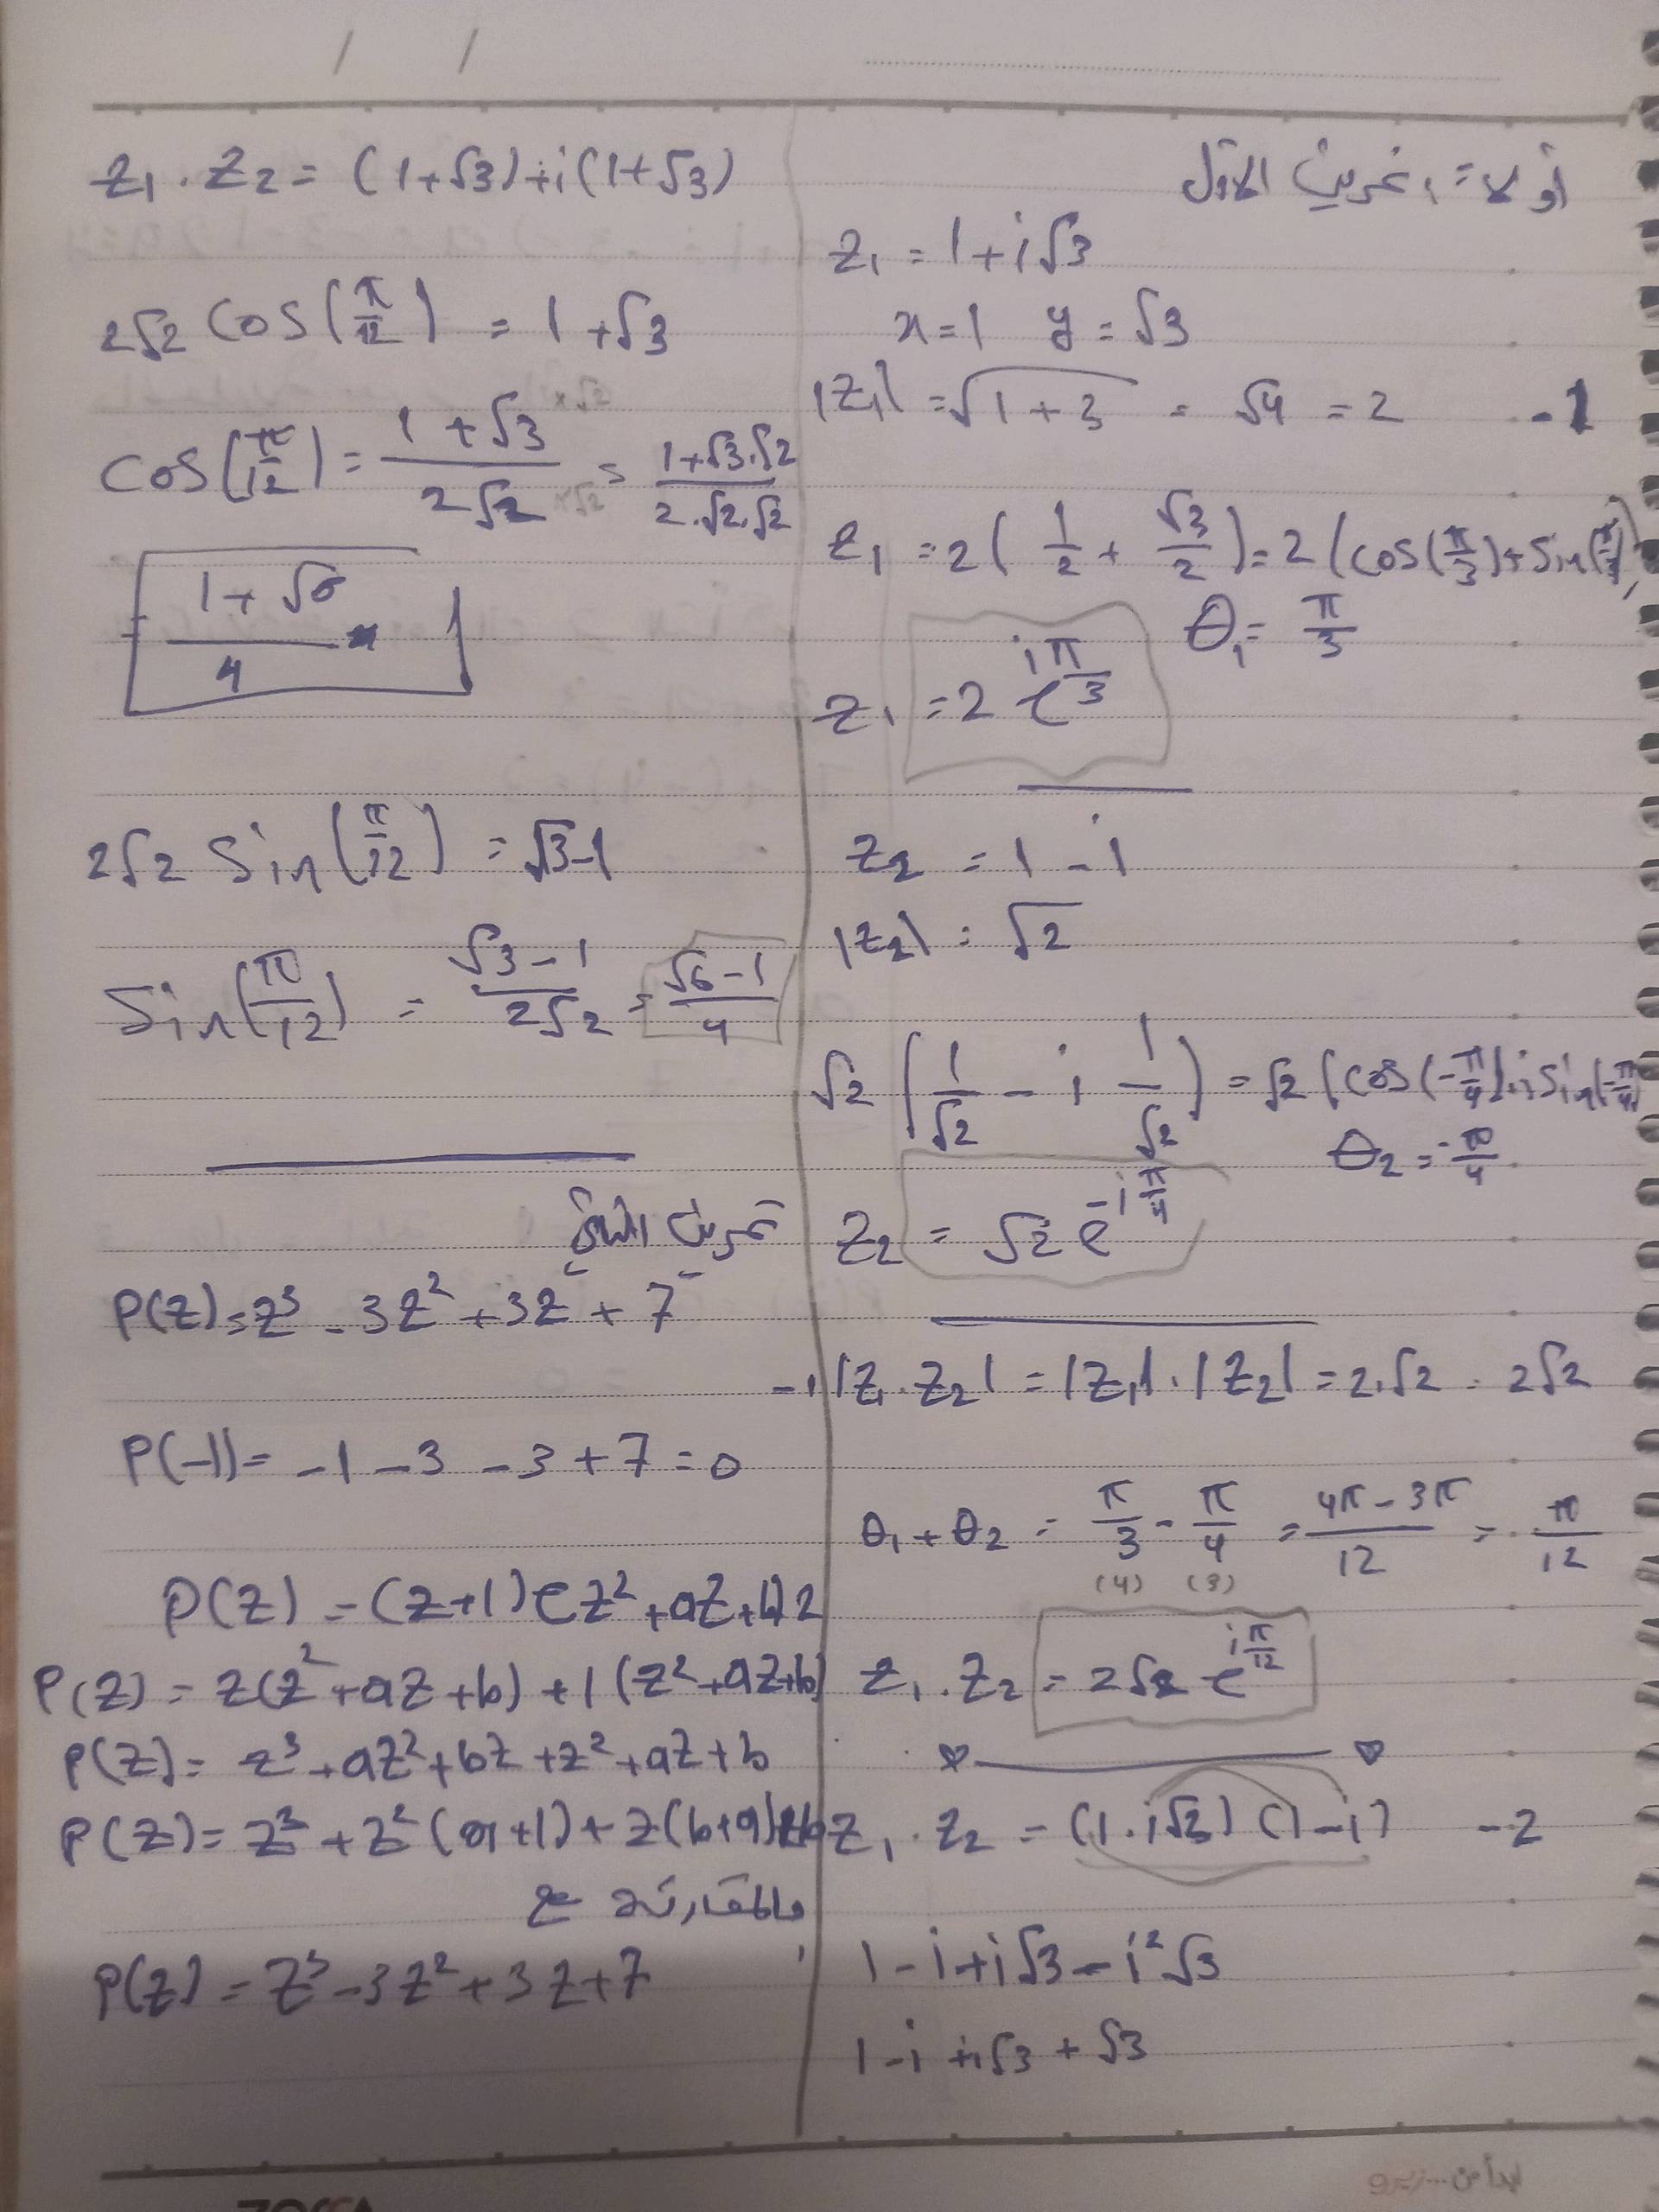 / /
أولا: تمرين الأول
z₁ = 1 + i√3
x = 1 y = √3
|z₁| = √1+3 = √4 = 2 -1
z₁ = 2 ( 1/2 + √3/2 ) = 2 (cos(π/3) + sin(π/3))
θ₁ = π/3
z₁ = 2 e^(iπ/3)
z₂ = 1 - i
|z₂| = √2
√2 ( 1/√2 - i 1/√2 ) = √2 (cos(-π/4) + i sin(-π/4)
θ₂ = -π/4
z₂ = √2 e^(-iπ/4)
- |z₁ . z₂| = |z₁| . |z₂| = 2.√2 = 2√2
θ₁ + θ₂ = π/3 - π/4 = (4π - 3π)/12 = π/12
(4) (3)
z₁ . z₂ = 2√2 e^(iπ/12)
z₁ . z₂ = (1 . i√3) (1 - i) -2
1 - i + i√3 - i²√3
1 - i + i√3 + √3
z₁ . z₂ = (1+√3) + i(1+√3)
2√2 cos(π/12) = 1 + √3
cos(π/12) = (1 + √3)/(2√2) = (1+√3.√2)/(2.√2.√2)
= (1 + √6)/4
2√2 sin(π/12) = √3-1
sin(π/12) = (√3 - 1)/(2√2) = (√6 - 1)/4
تمرين الثاني
P(z) = z³ - 3z² + 3z + 7
P(-1) = -1 - 3 - 3 + 7 = 0
P(z) = (z+1)(z² + az + b)
P(z) = z(z² + az + b) + 1(z² + az + b)
P(z) = z³ + az² + bz + z² + az + b
P(z) = z³ + z²(a+1) + z(b+a) + b
بالمقارنة مع
P(z) = z³ - 3z² + 3z + 7
ابدأ من ... زيرو